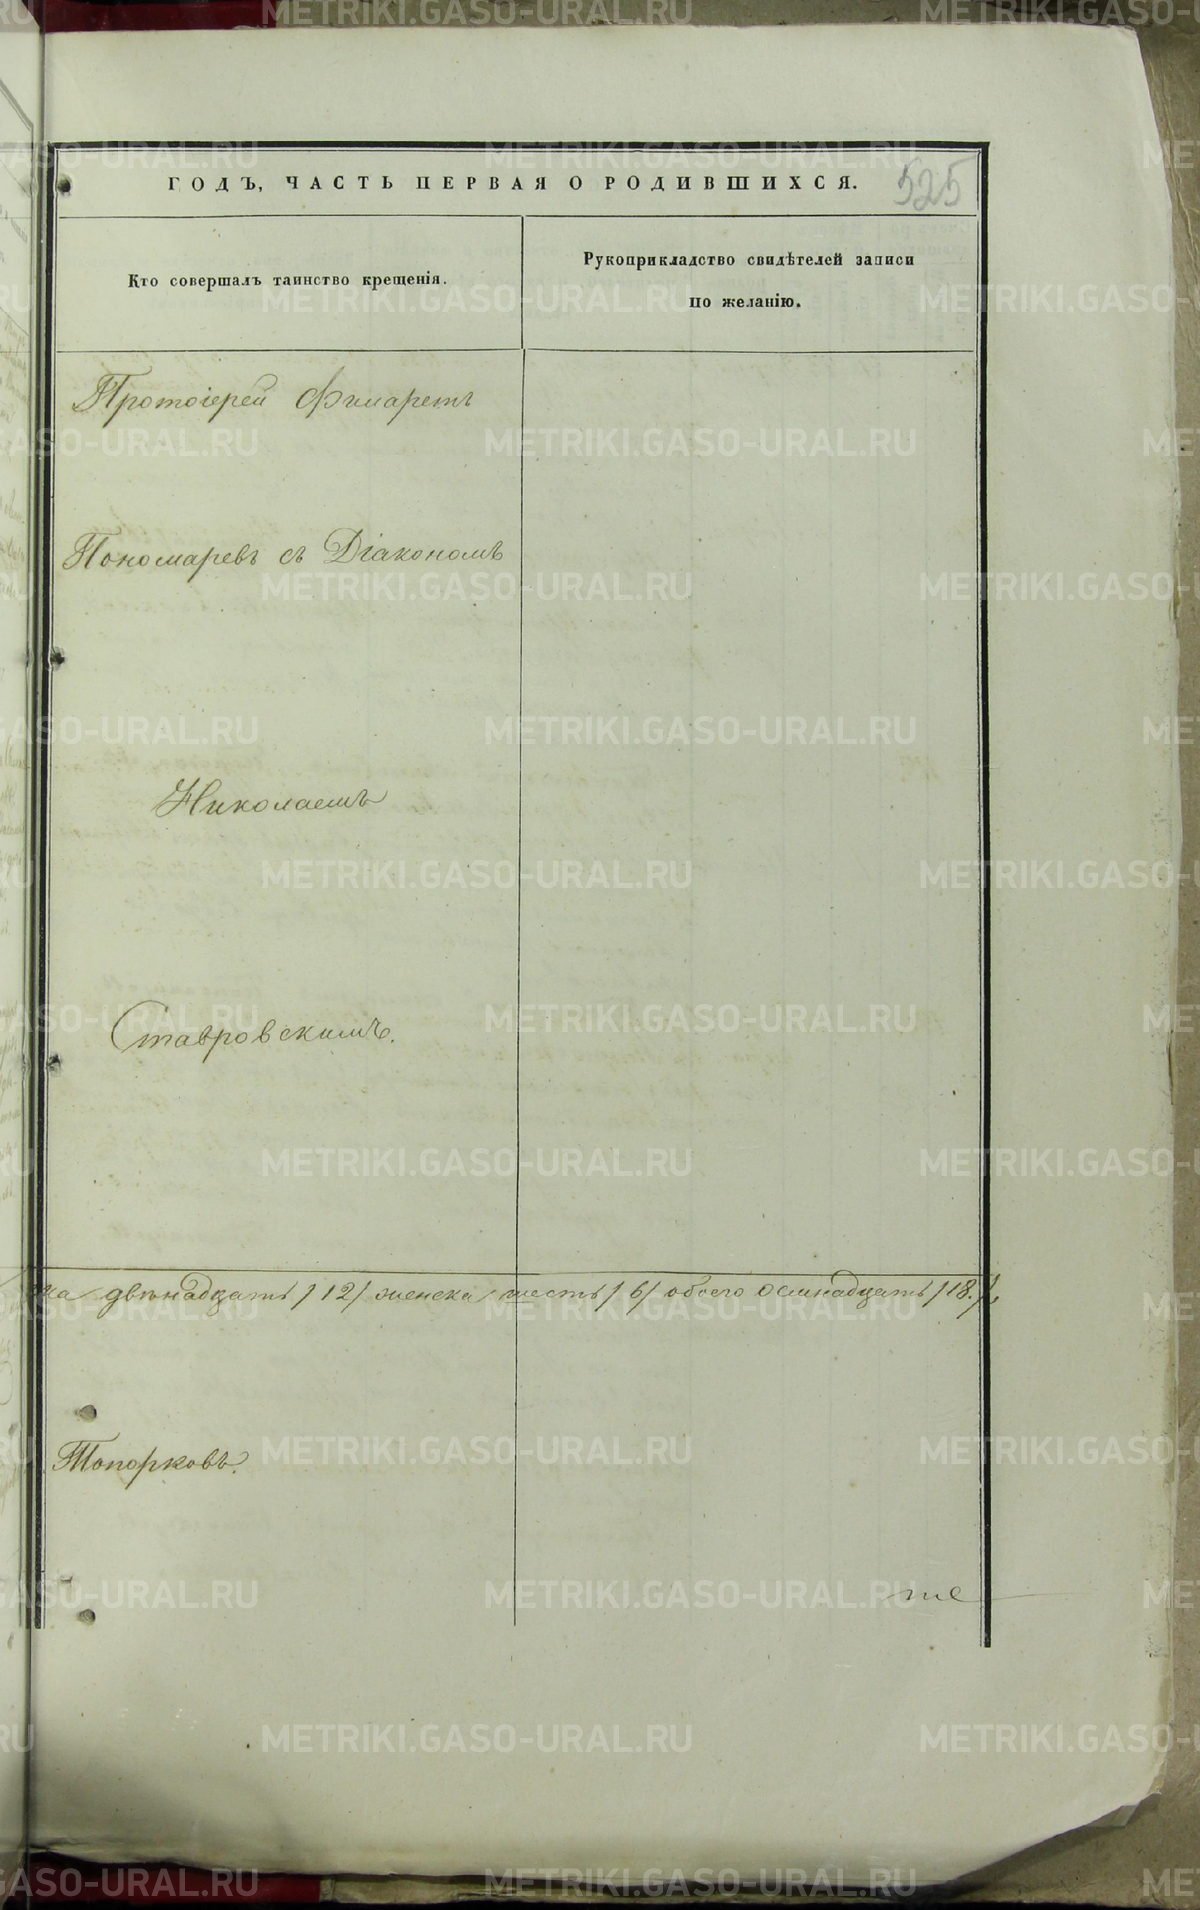 ГОДЪ, ЧАСТЬ ПЕРВАЯ О РОДИВШИХСЯ.
525
Кто совершалъ таинство крещенія.
Рукоприкладство свидѣтелей записи
по желанію.
Протоіерей Филаретъ
Пономаревъ съ Діакономъ
Николаемъ
Ставровскимъ.
ка двѣнадцать /12/ женска шесть /6/ обоего осмнадцать /18./
Топорковъ.
METRIKI.GASO-URAL.RU